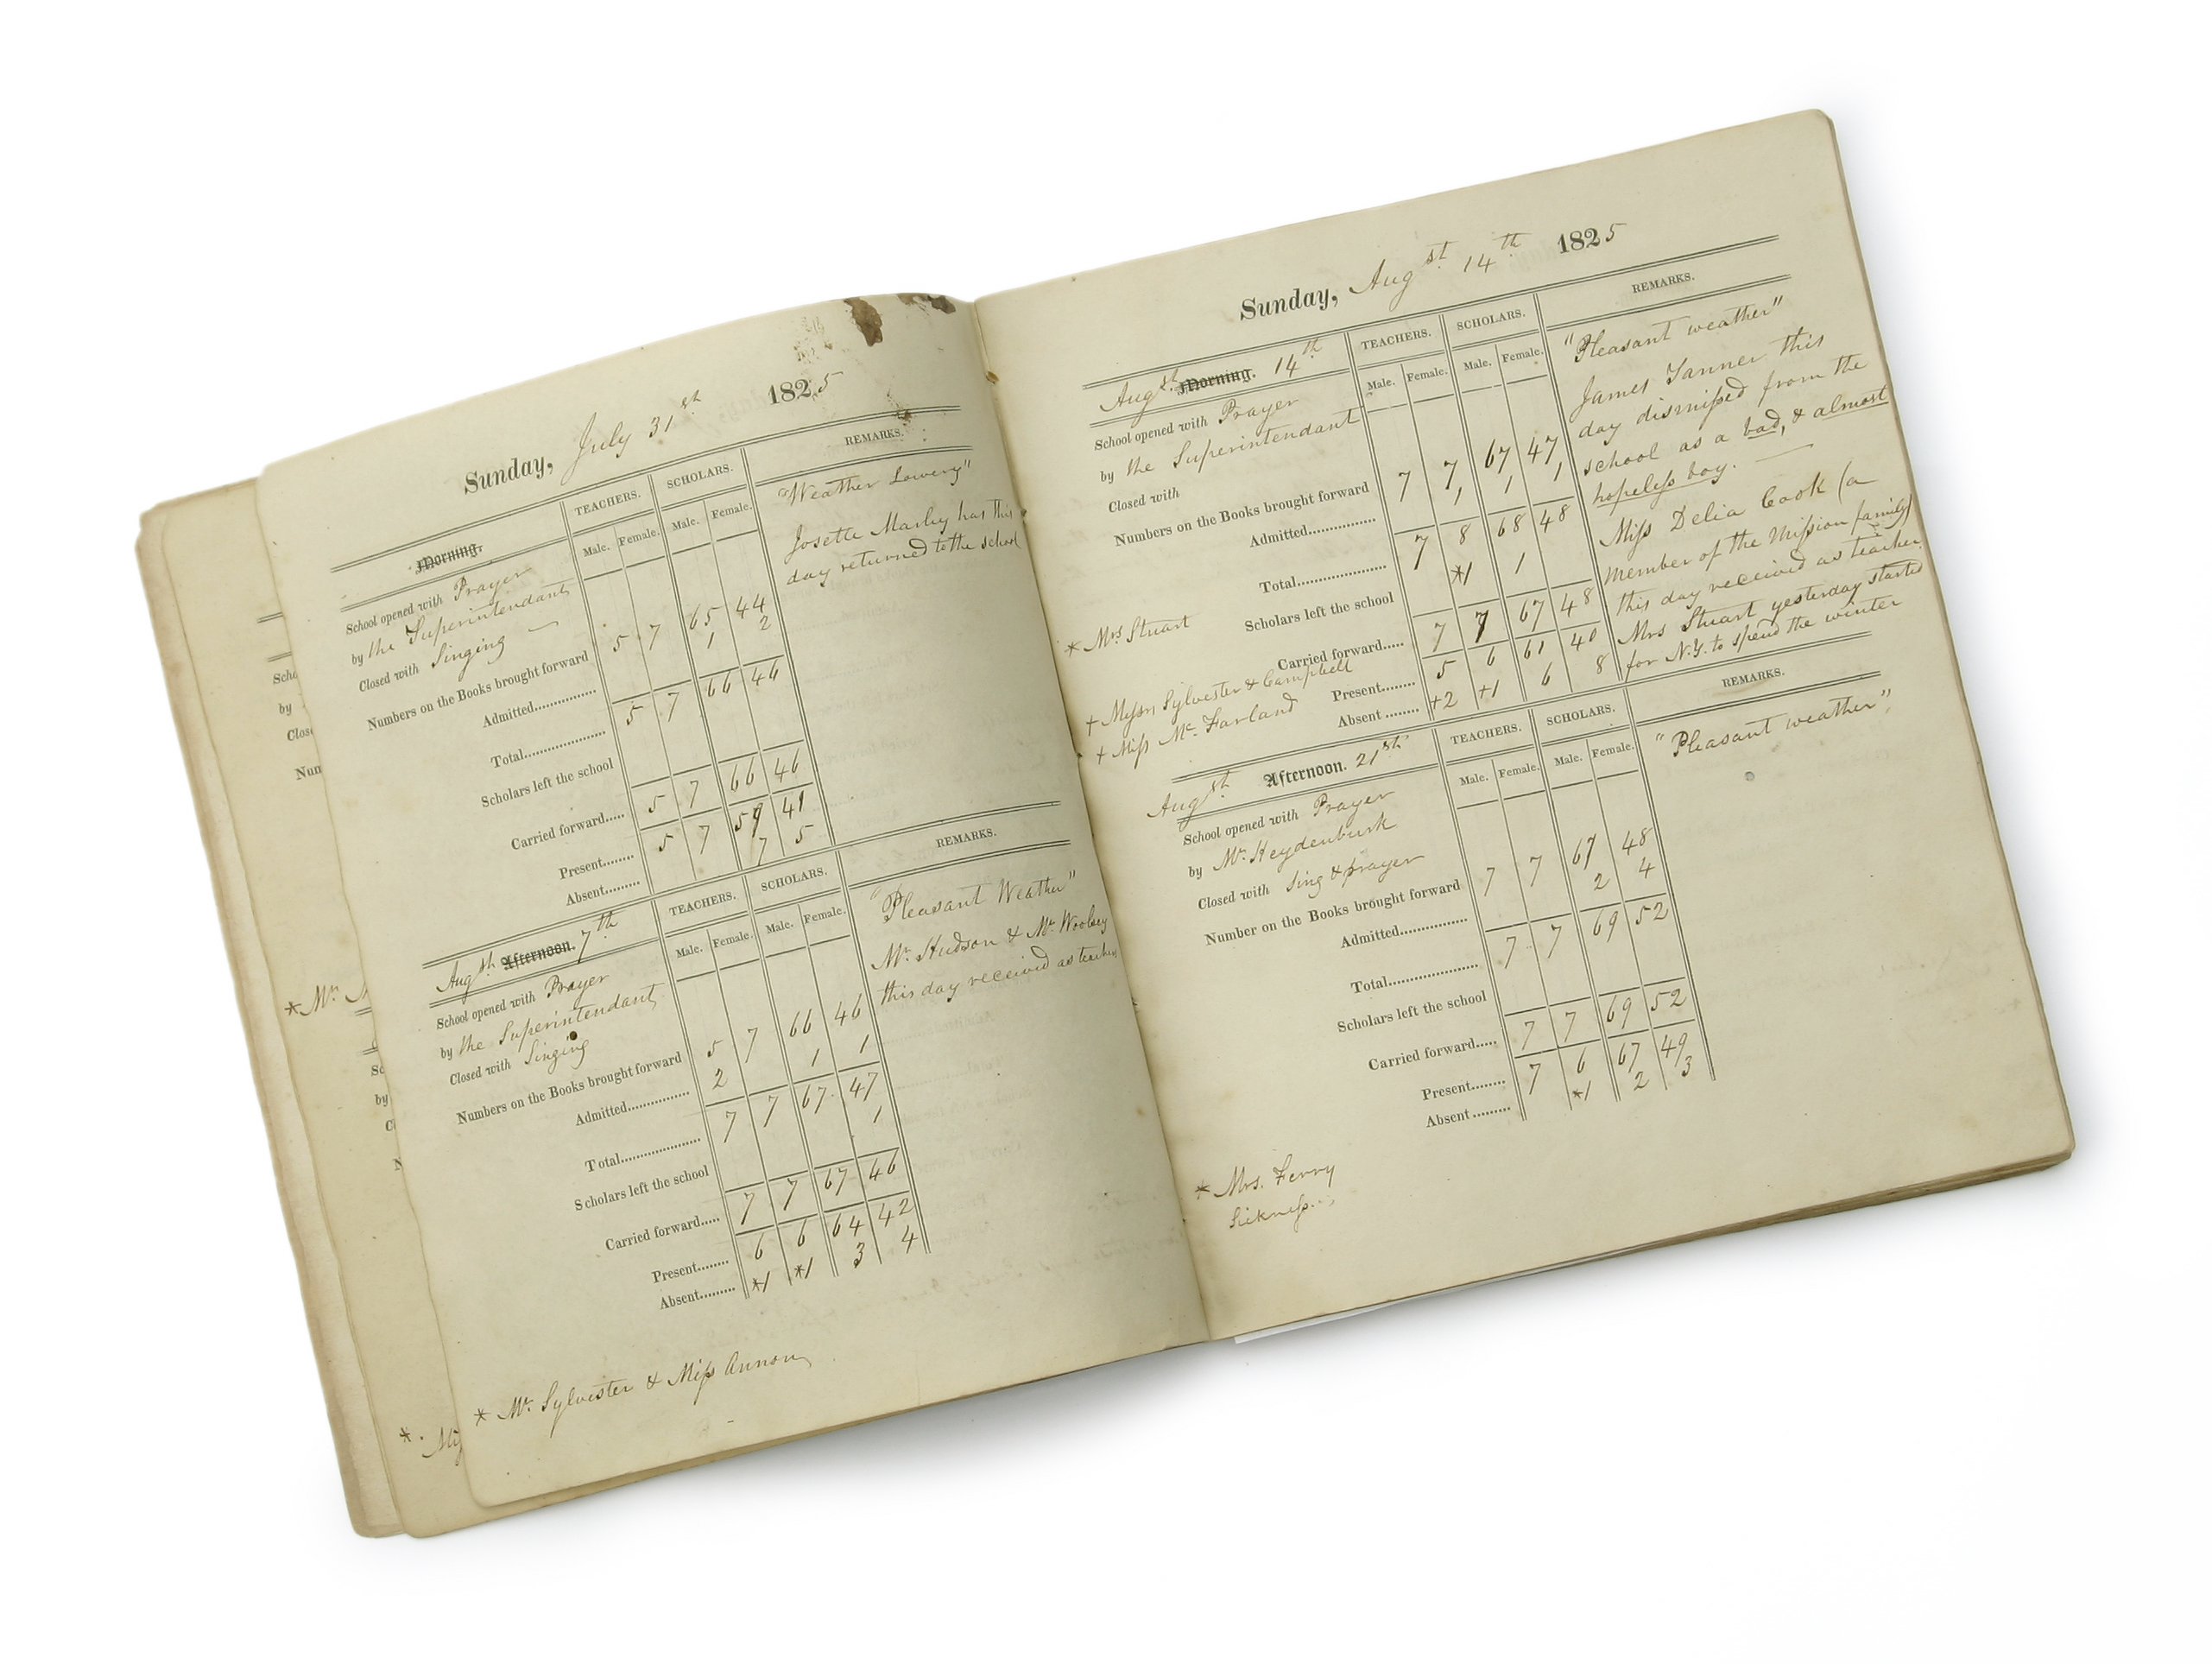 Sunday, July 31st 1825
Morning.
TEACHERS.
SCHOLARS.
REMARKS.
Male.
Female.
Male.
Female.
School opened with Prayer
by the Superintendant
Closed with Singing —
Numbers on the Books brought forward 5 7 65 44
Admitted 1 2
Total 5 7 66 46
Scholars left the school
Carried forward 5 7 66 46
Present 5 7 59 41
Absent 7 5
"Weather Lowery"
Josette Marley has this
day returned to the school
Augst Afternoon. 7th
TEACHERS.
SCHOLARS.
REMARKS.
Male.
Female.
Male.
Female.
School opened with Prayer
by the Superintendant
Closed with Singing
Numbers on the Books brought forward 5 7 66 46
Admitted 2 1 1
Total 7 7 67 47
Scholars left the school 1
Carried forward 7 7 67 46
Present 6 6 64 42
Absent *1 *1 3 4
"Pleasant Weather"
Mr. Hudson & Mr. Woolsey
this day received as teachers
* Mr. Sylvester & Miss Annon
Sunday, Augst 14th 1825
Augst Morning. 14th
TEACHERS.
SCHOLARS.
REMARKS.
Male.
Female.
Male.
Female.
School opened with Prayer
by the Superintendant
Closed with
Numbers on the Books brought forward 7 7 67 47
Admitted 1 1 1
Total 7 8 68 48
Scholars left the school *1 1
* Mrs Stuart
Carried forward 7 7 67 48
Present 5 6 61 40
Absent +2 +1 6 8
+ Messrs Sylvester & Campbell
+ Miss Mc Farland
"Pleasant weather"
James Tanner this
day dismissed from the
school as a bad, & almost
hopeless boy. —
Miss Delia Cook (a
member of the Mission family)
this day received as teacher.
Mrs Stuart yesterday started
for N.Y. to spend the winter
Augst Afternoon. 21st
TEACHERS.
SCHOLARS.
REMARKS.
Male.
Female.
Male.
Female.
School opened with Prayer
by Mr. Heydenburk
Closed with Sing & prayer
Number on the Books brought forward 7 7 67 48
Admitted 2 4
Total 7 7 69 52
Scholars left the school
Carried forward 7 7 69 52
Present 7 6 67 49
Absent *1 2 3
"Pleasant weather"
* Mrs. Ferry
Sickness.